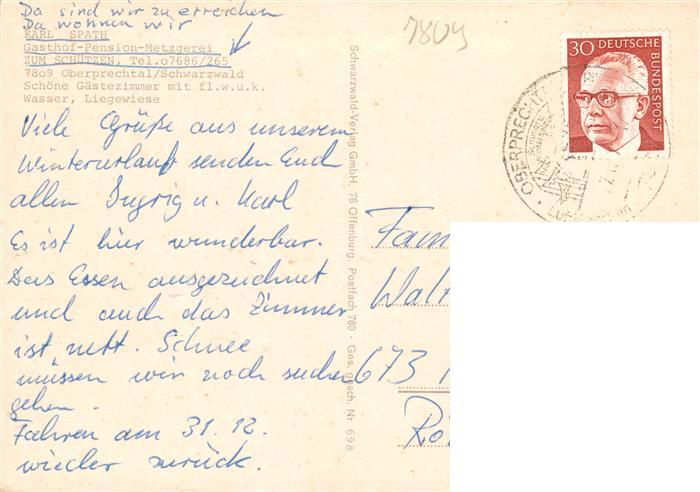 Da sind wir zu erreichen
Da wohnen wir
KARL SPATH
Gasthof-Pension-Metzgerei
ZUM SCHÜTZEN, Tel.o7686/265
78o9 Oberprechtal/Schwarzwald
Schöne Gästezimmer mit fl.w.u.k.
Wasser, Liegewiese
Viele Grüße aus unserem
Winterurlaub senden Euch
allen Ingrig u. Karl
Es ist hier wunderbar.
Das Essen ausgezeichnet
und auch das Zimmer
ist nett. Schnee
müssen wir noch suchen
gehen.
Fahren am 31.12.
wieder zurück.
Schwarzwald-Verlag GmbH, 76 Offenburg, Postfach 780 · Ges. gesch. Nr. 698
7809
30 DEUTSCHE
BUNDESPOST
OBERPRECHT
Fam
Walt
673
Rö